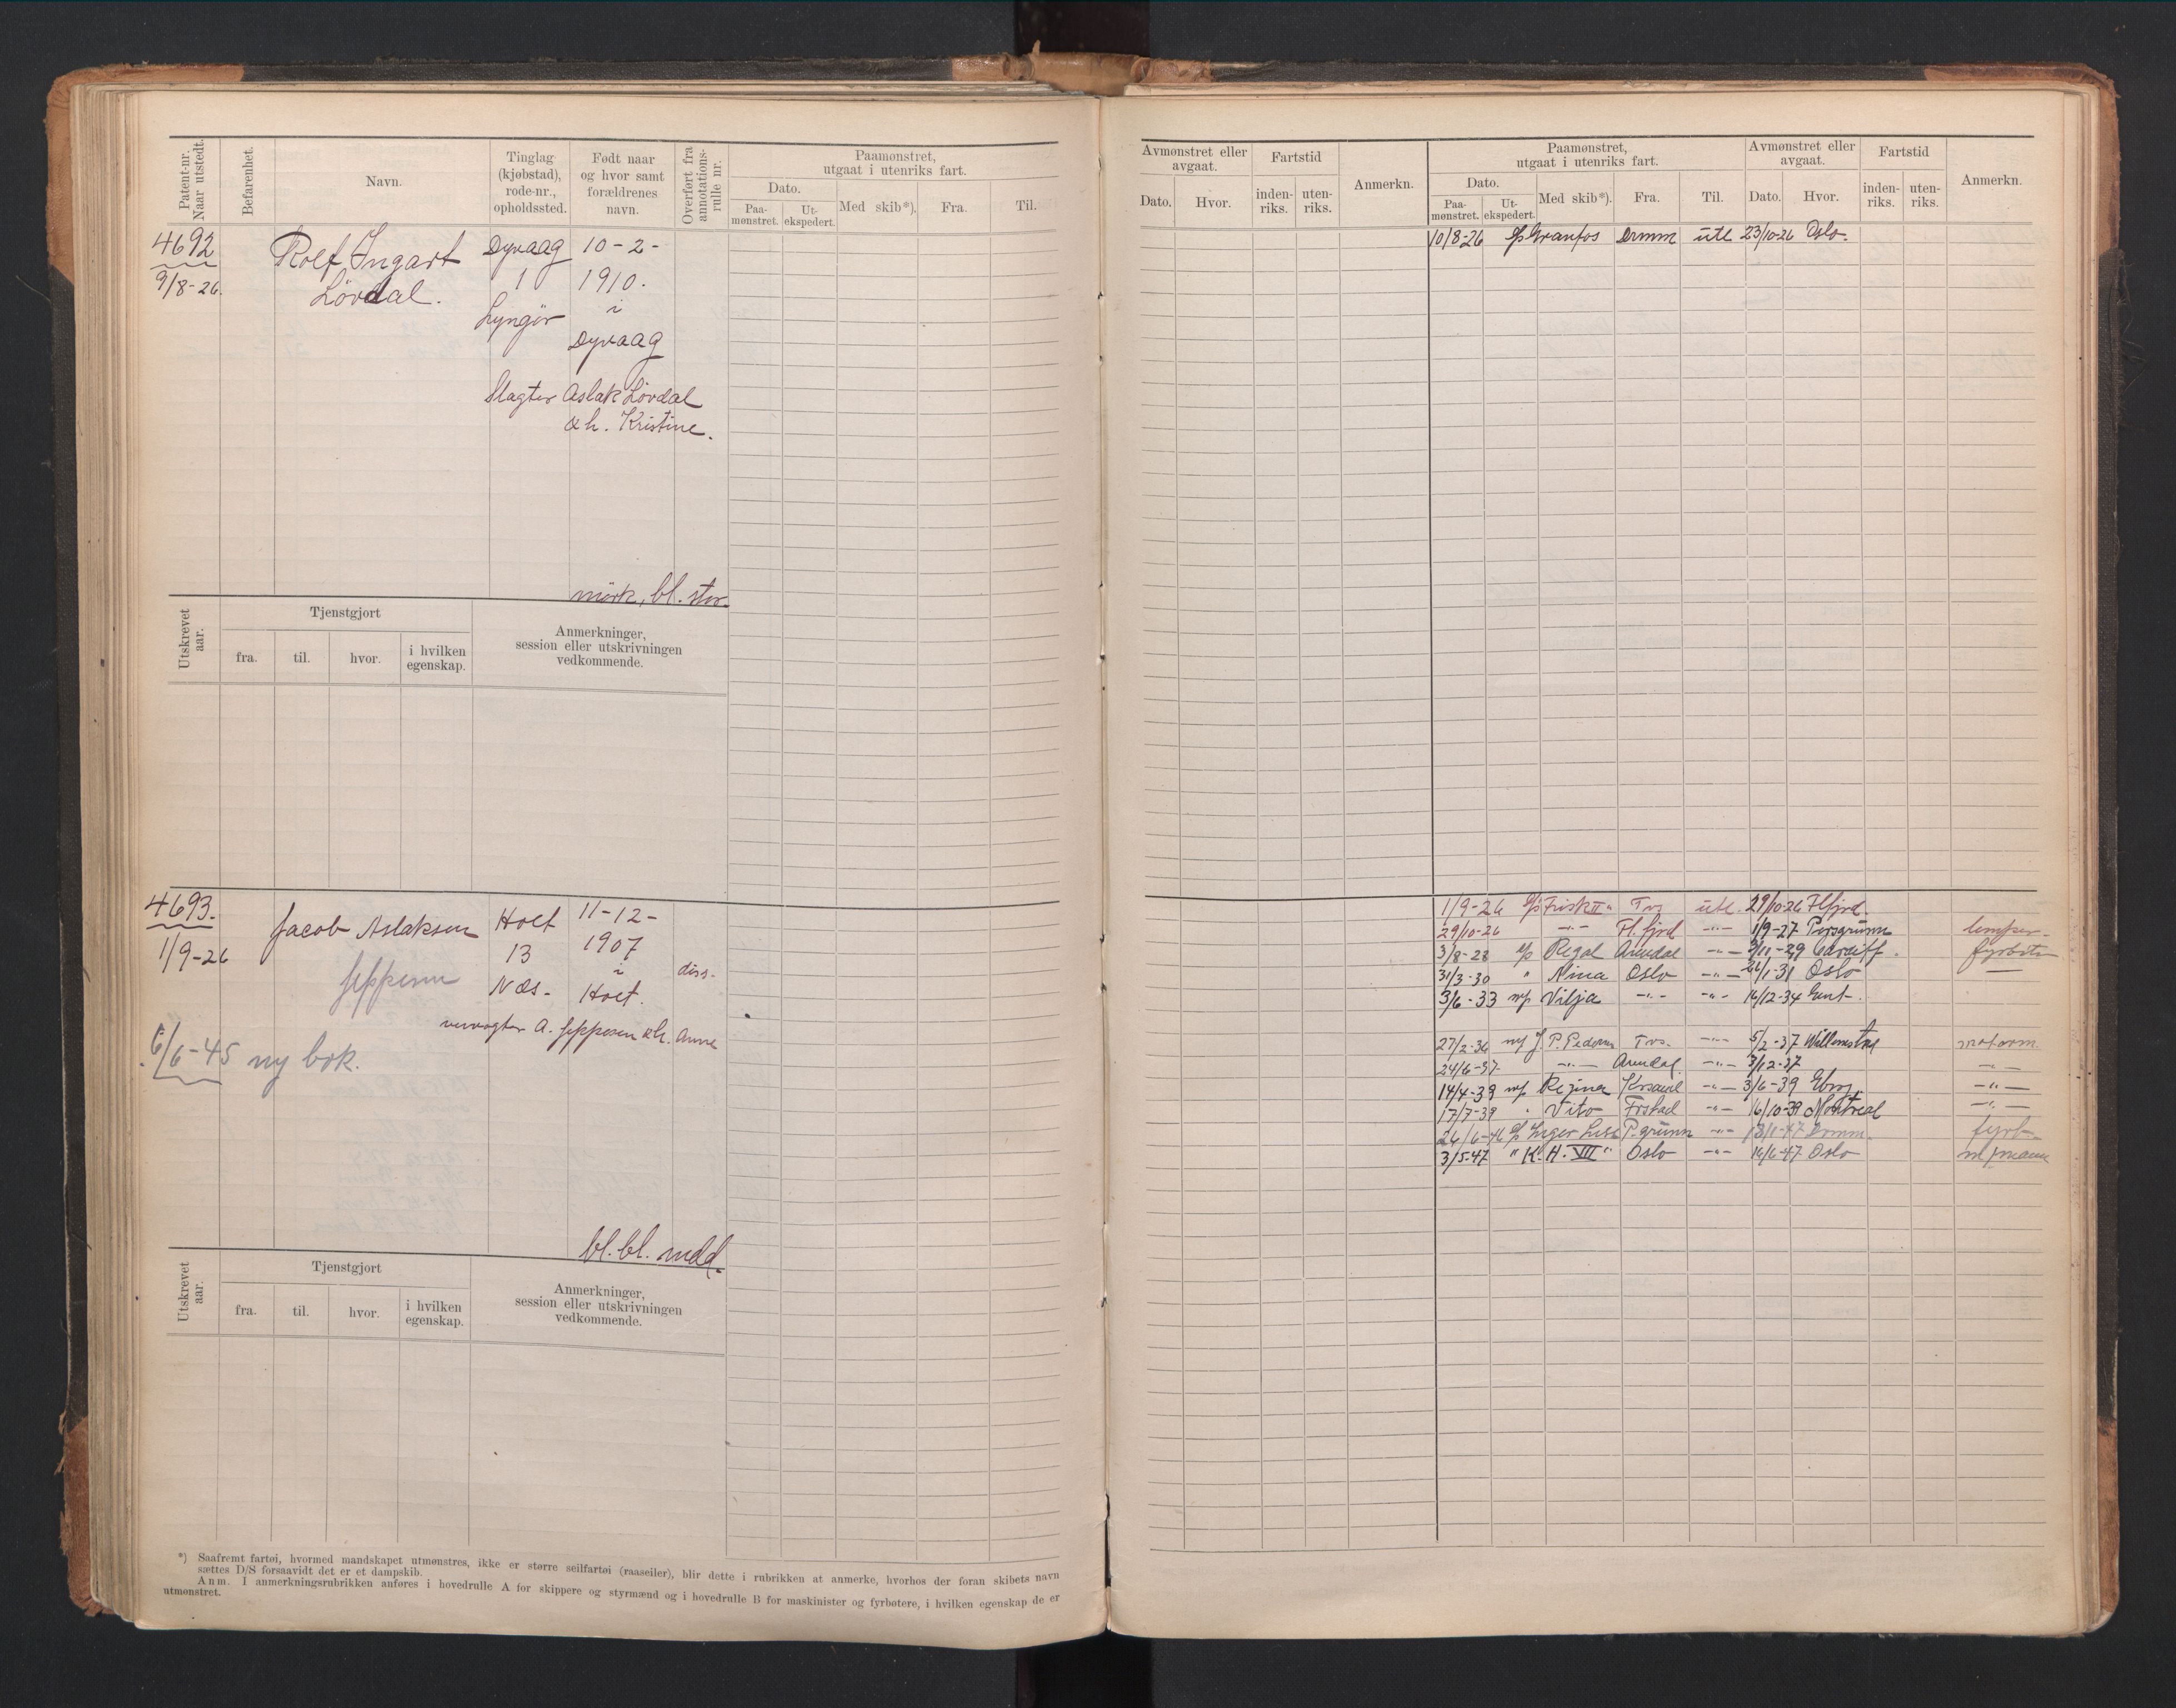 Patent-nr. Naar utstedt.
Befarenhet.
Navn.
Tinglag (kjøbstad), rode-nr., opholdssted.
Født naar og hvor samt forældrenes navn.
Overført fra annotations-rulle nr.
Paamønstret, utgaat i utenriks fart.
Dato.
Paa-mønstret.
Ut-ekspedert.
Med skib*).
Fra.
Til.
4692
9/8-26.
Rolf Ingart
Lövdal.
Dyvaag
1
Lyngör
10-2-
1910.
i
Dyvaag
Slagter Aslak Lövdal
& h. Kristine.
mörk, bl. stor.
Utskrevet aar.
Tjenstgjort
fra.
til.
hvor.
i hvilken egenskap.
Anmerkninger,
session eller utskrivningen
vedkommende.
4693.
1/9-26
Jacob Aslaksen
Jeppesen
Holt
13
Næs.
11-12-
1907
i
Holt.
diss.
A. Jeppesen & h. Anna
6/6-45 ny bok.
bl. bl. midd.
Utskrevet aar.
Tjenstgjort
fra.
til.
hvor.
i hvilken egenskap.
Anmerkninger,
session eller utskrivningen
vedkommende.
*) Saafremt fartøi, hvormed mandskapet utmønstres, ikke er større seilfartøi (raaseiler), blir dette i rubrikken at anmerke, hvorhos der foran skibets navn
sættes D/S forsaavidt det er et dampskib.
Anm. I anmerkningsrubrikken anføres i hovedrulle A for skippere og styrmænd og i hovedrulle B for maskinister og fyrbøtere, i hvilken egenskap de er
utmønstret.
Avmønstret eller avgaat.
Dato.
Hvor.
Fartstid
inden-riks.
uten-riks.
Anmerkn.
Paamønstret, utgaat i utenriks fart.
Dato.
Paa-mønstret.
Ut-ekspedert.
Med skib*).
Fra.
Til.
Avmønstret eller avgaat.
Dato.
Hvor.
Fartstid
inden-riks.
uten-riks.
Anmerkn.
10/8-26 s/s Granfos Drmm utl 23/10-26 Oslo.
1/9-26 s/s Frisk II" Tvs utl. 29/10-26 Flfjord.
29/10-26 -"- Fl.fjord -"- 1/9-27 Porsgrunn lemper-
3/8-28 s/s Regal Arendal -"- 9/11-29 Cardiff. fyrbøter
31/3-30 " Nina Oslo -"- 26/1-31 Oslo —
3/6-33 m/s Vilja -"- -"- 16/12-34 Gent.
27/2-36 m/s J. P. Pedersen Tvs. -"- 5/2-37 Willemstad motorm.
24/6-37 -"- Arendal. -"- 3/12-37 -"-
14/4-39 m/s Regina Krsand -"- 3/6-39 Gbrg. -"-
17/7-39 " Vito Frstad -"- 16/10-39 Montreal -"-
26/6-46 s/s Inger Lise P.grunn -"- 18/1-47 Drmm. fyrb.
3/5-47 " K. H. VII" Oslo -"- 16/6-47 Oslo m/mann